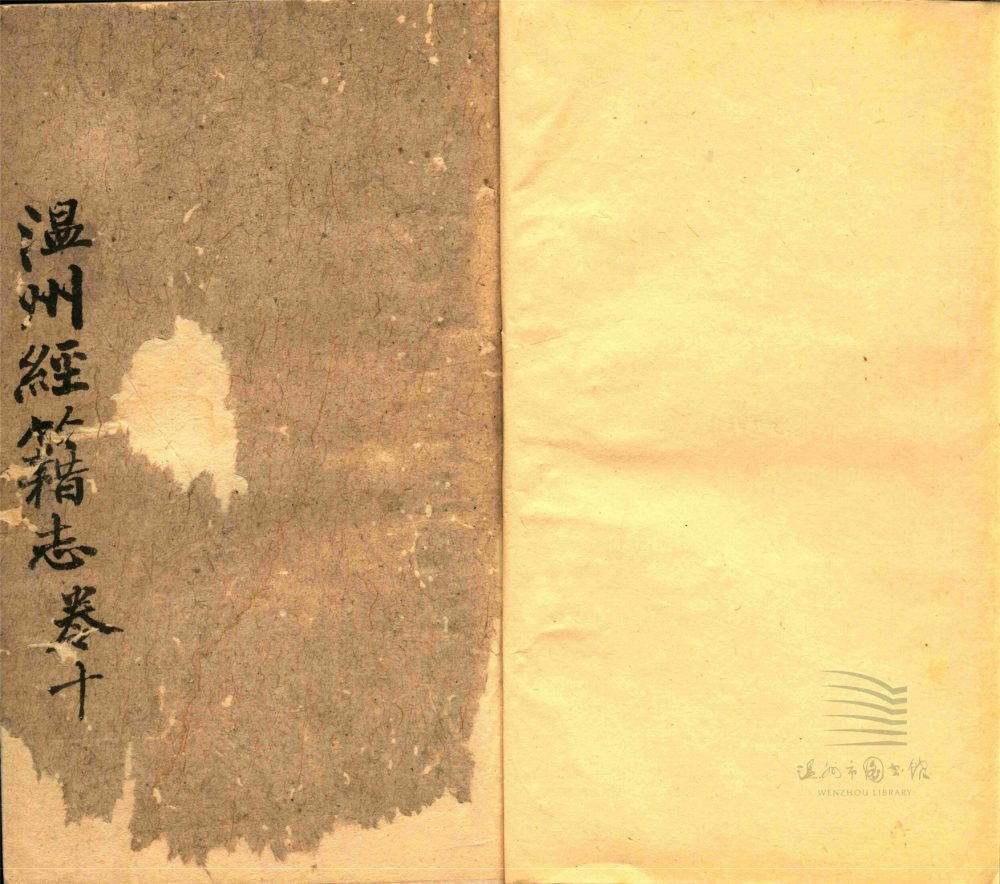 温州經籍志卷十
温州市图书馆
WENZHOU LIBRARY